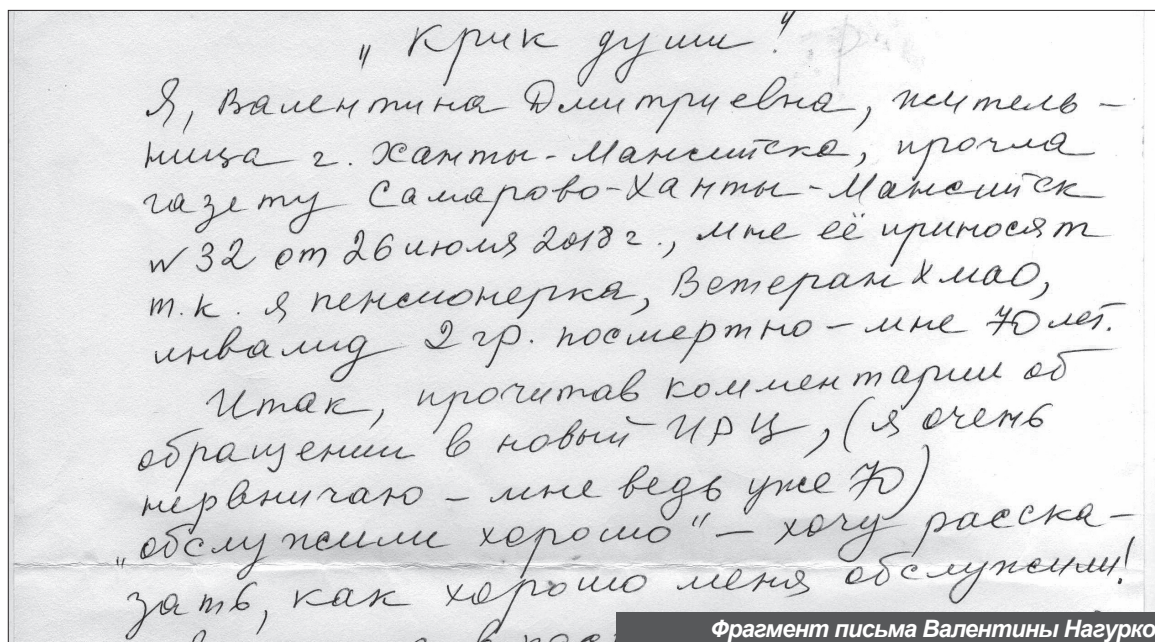 „Крик души!“
Я, Валентина Дмитриевна, житель-
ница г. Ханты-Мансийска, прочла
газету Самарово-Ханты-Мансийск
№32 от 26 июля 2018 г., мне её приносят
т.к. я пенсионерка, Ветеран Хмао,
инвалид 2 гр. посмертно – мне 70 лет.
Итак, прочитав комментарии об
обращении в новый ИРЦ, (я очень
нервничаю – мне ведь уже 70)
„обслужили хорошо“ – хочу расска-
зать, как хорошо меня обслужили!
Фрагмент письма Валентины Нагурко